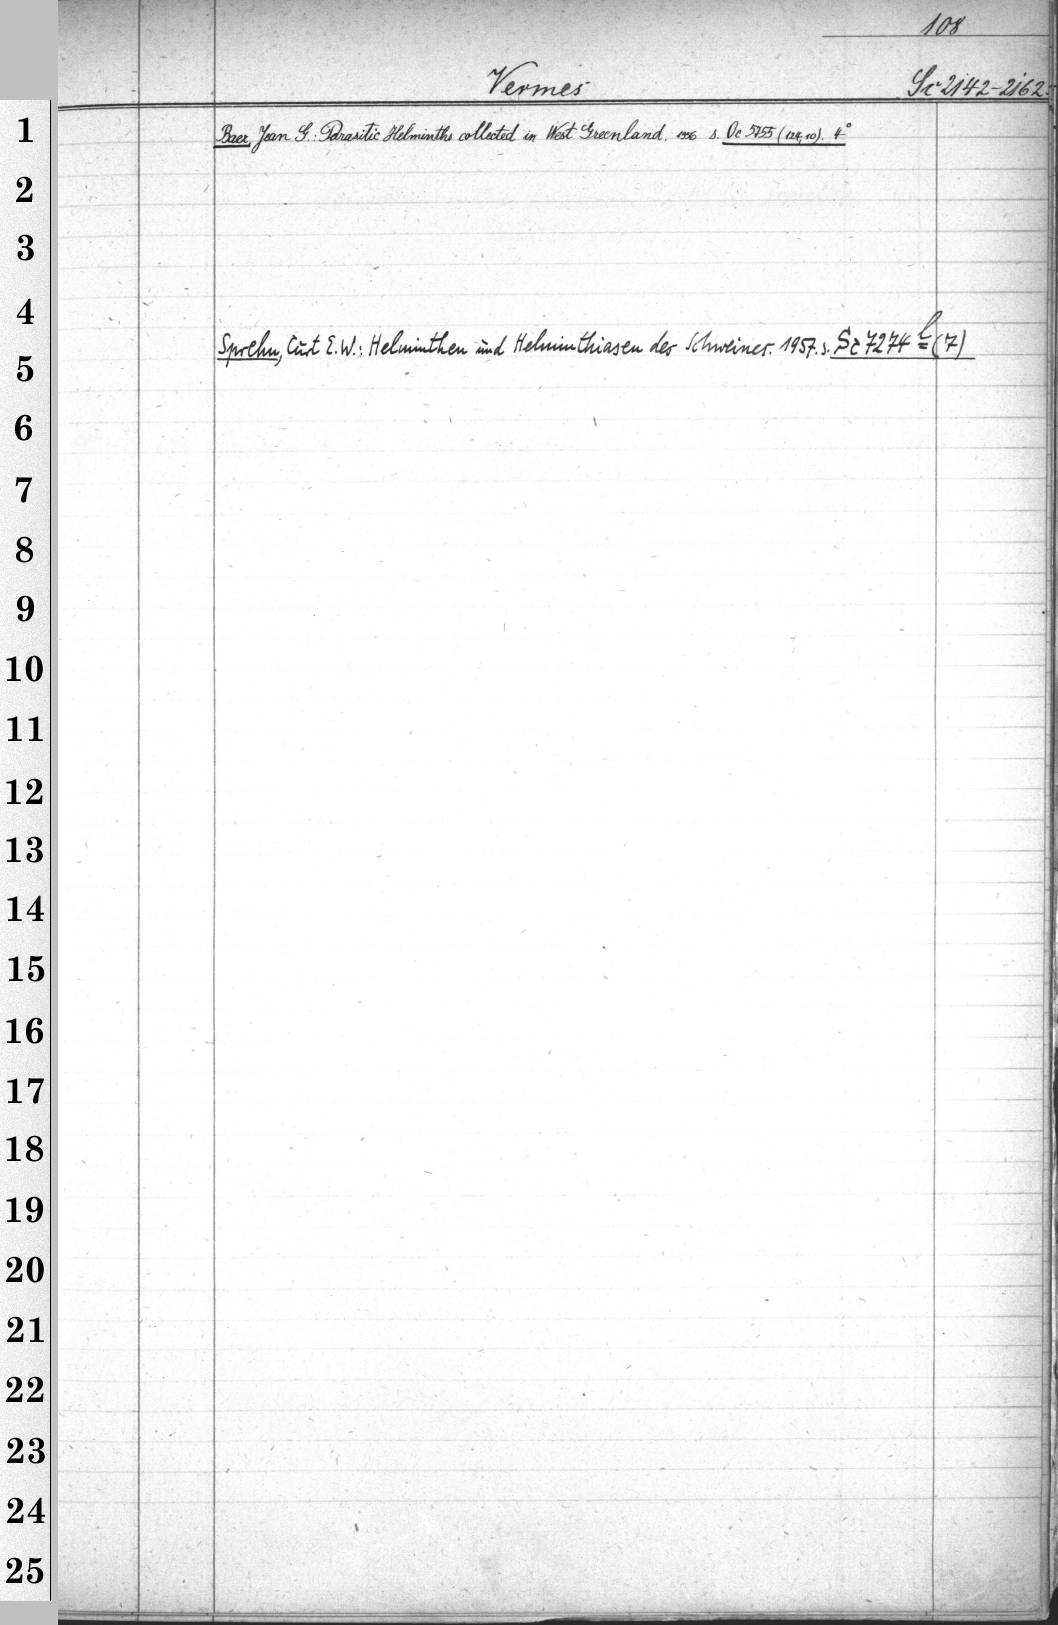 108
Vermes
Sc 2142-2162
1
Baer, Jean G.: Parasitic Helminths collected in West Greenland. 1956 s. Oc 5755 (124, 10). 4°
2
3
4
Sprehn, Curt E.W.: Helminthen und Helminthiasen des Schweines. 1957. s. Sc 7274 (7)
5
6
7
8
9
10
11
12
13
14
15
16
17
18
19
20
21
22
23
24
25